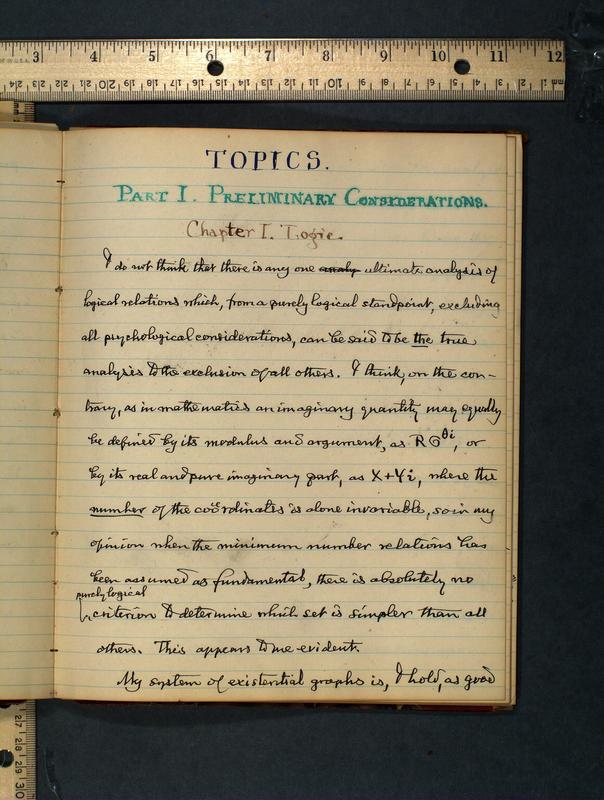 3 4 5 6 7 8 9 10 11 12
TOPICS.
PART I. PRELIMINARY CONSIDERATIONS.
Chapter I. Logic.
I do not think that there is any one analy ultimate analysis of
logical relations which, from a purely logical standpoint, excluding
all psychological considerations, can be said to be the true
analysis to the exclusion of all others. I think, on the con-
trary, as in mathematics an imaginary quantity may equally
be defined by its modulus and argument, as R G^θi, or
by its real and pure imaginary part, as X+Yi, where the
number of the coördinates is alone invariable, so in my
opinion when the minimum number relations has
been assumed as fundamental, there is absolutely no
purely logical
criterion to determine which set is simpler than all
others. This appears to me evident.
My system of existential graphs is, I hold, as good